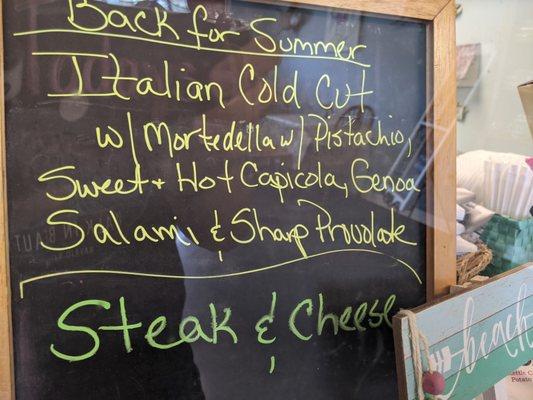 Back for Summer
Italian Cold Cut
w/ Mortedella w/ Pistachio,
Sweet + Hot Capicola, Genoa
Salami & Sharp Provolake
Steak & Cheese
beach